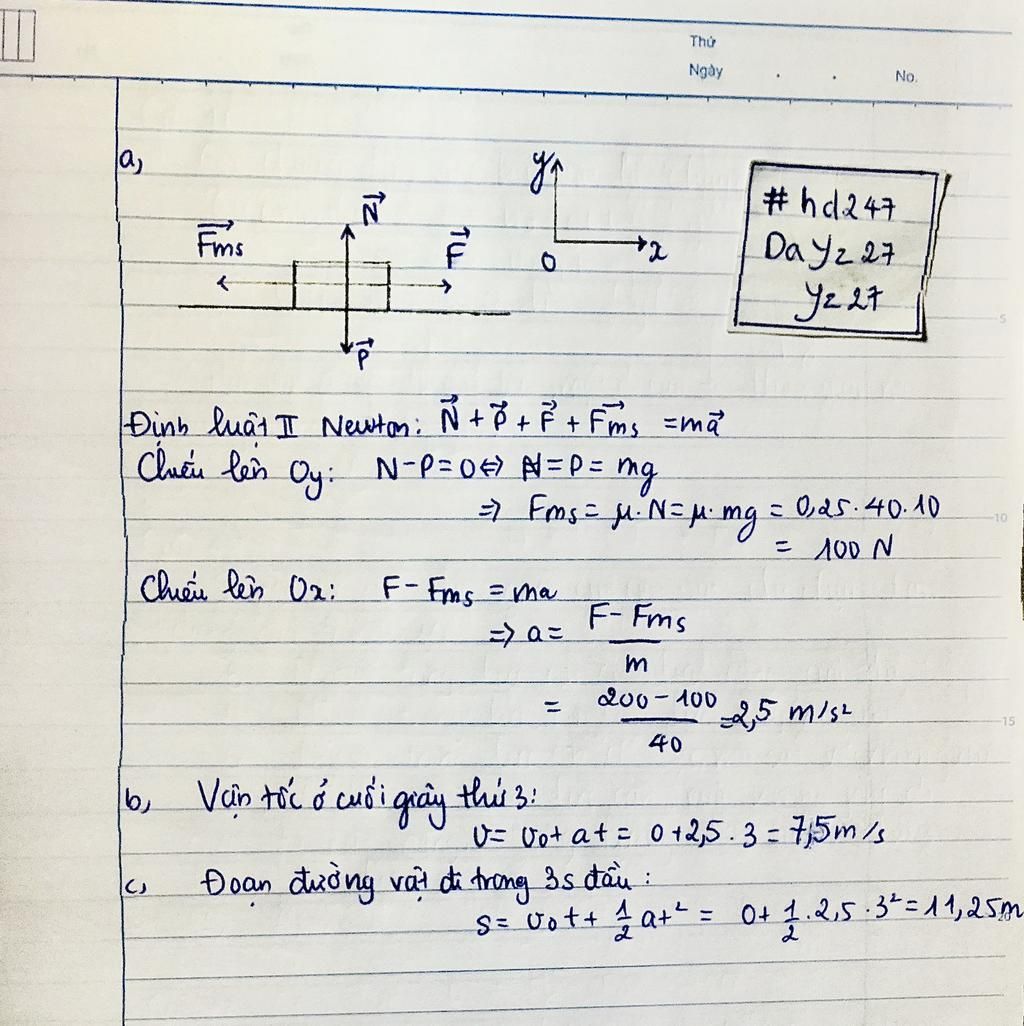 Thứ
Ngày . . No.
a,
y
N⃗
Fms⃗
F⃗
O x
P⃗
#hd247
Dayz27
yz27
5
Định luật II Newton: N⃗ + P⃗ + F⃗ + Fms⃗ = ma⃗
Chiếu lên Oy: N-P=0 ⇔ N=P= mg
⇒ Fms = μ.N = μ.mg = 0,25.40.10
10
= 100 N
Chiếu lên Ox: F - Fms = ma
⇒ a = (F - Fms)/m
= (200 - 100)/40 = 2,5 m/s²
15
b, Vận tốc ở cuối giây thứ 3:
v = v₀ + at = 0 + 2,5 . 3 = 7,5 m/s
c, Đoạn đường vật đi trong 3s đầu:
s = v₀t + 1/2 at² = 0 + 1/2 . 2,5 . 3² = 11,25m
20